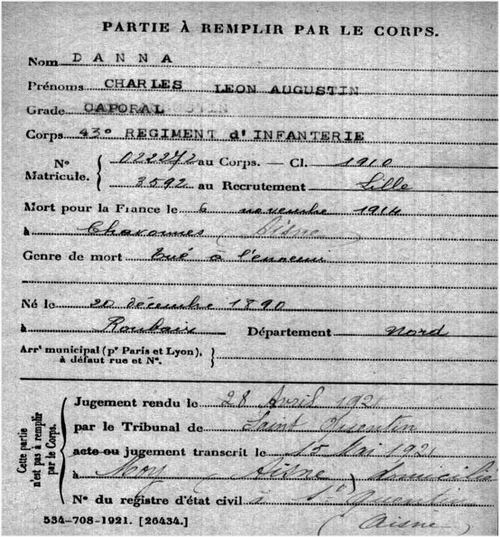 PARTIE À REMPLIR PAR LE CORPS.
Nom DANNA
Prénoms CHARLES LEON AUGUSTIN
Grade CAPORAL
Corps 43e REGIMENT d'INFANTERIE
N° Matricule. { 022272 au Corps. — Cl. 1910
3592 au Recrutement Lille
Mort pour la France le 6 novembre 1914
à Chavonnes (Aisne)
Genre de mort tué à l'ennemi
Né le 20 décembre 1890
à Roubaix Département Nord
Arrt municipal (pr Paris et Lyon), à défaut rue et N°.
Cette partie n'est pas à remplir par le Corps.
Jugement rendu le 28 Avril 1921
par le Tribunal de Saint Quentin
acte ou jugement transcrit le 15 Mai 1921
à Moy (Aisne) domicile
N° du registre d'état civil à St Quentin
(Aisne)
534-708-1921. [26434.]